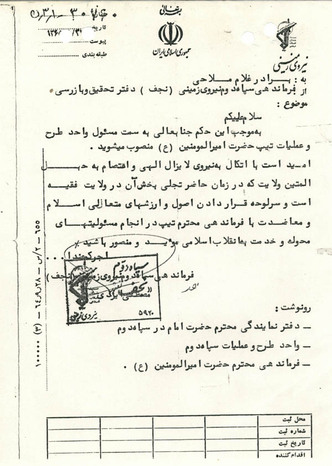 بسمه تعالی
جمهوری اسلامی ایران
نیروی زمینی
تاریخ
پیوست
طبقه بندی :
به : برادر غلام ملاحی
از : فرماندهی سپاه دوم نیروی زمینی ( نجف ) دفتر تحقیق و بازرسی
موضوع :
سلام علیکم
به موجب این حکم جنابعالی به سمت مسئول واحد طرح
و عملیات تیپ حضرت امیرالمومنین ( ع ) منصوب میشوید .
امید است با اتکال به نیروی لایزال الهی و اعتصام به حبل
المتین ولایت که در زمان حاضر تجلی بخش آن در ولایت فقیه
است و سرلوحه قرار دادن اصول و ارزشهای متعالی اسلام
و معاضدت با فرماندهی محترم تیپ در انجام مسئولیتهای
محوله و خدمت به انقلاب اسلامی موید و منصور باشید
اجرکم عندا...
فرماندهی سپاه دوم نیروی زمینی ( نجف )
سپاه دوم
نجف
۵۹۲۰
نیروی زمینی
رونوشت :
ــ دفتر نمایندگی محترم حضرت امام در سپاه دوم
ــ واحد طرح و عملیات سپاه دوم
ــ فرماندهی محترم حضرت امیرالمومنین ( ع ) .
محل ثبت
شماره ثبت
تاریخ ثبت
اقدام کننده